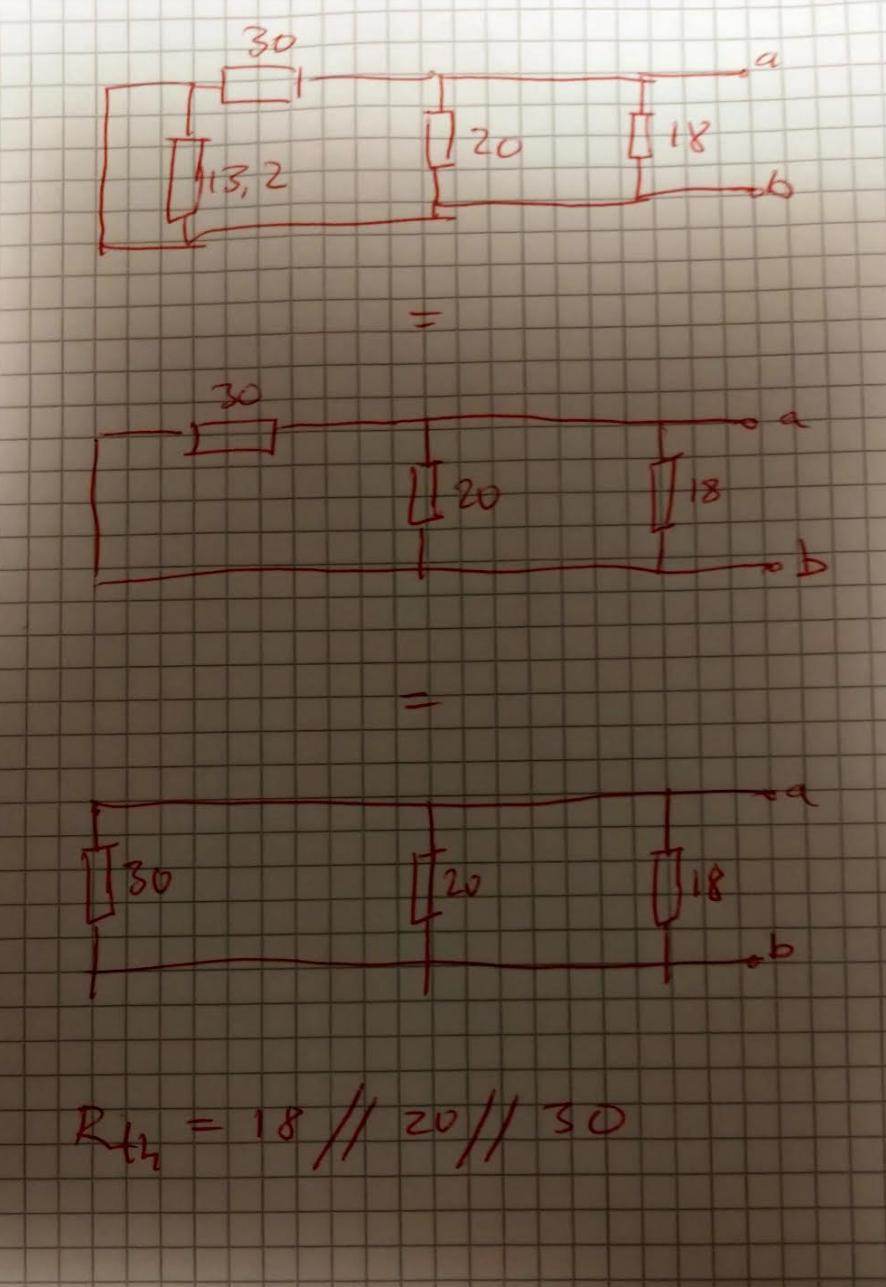 30
a
20
18
13,2
b
=
30
a
20
18
b
=
a
30
20
18
b
Rth = 18 // 20 // 30